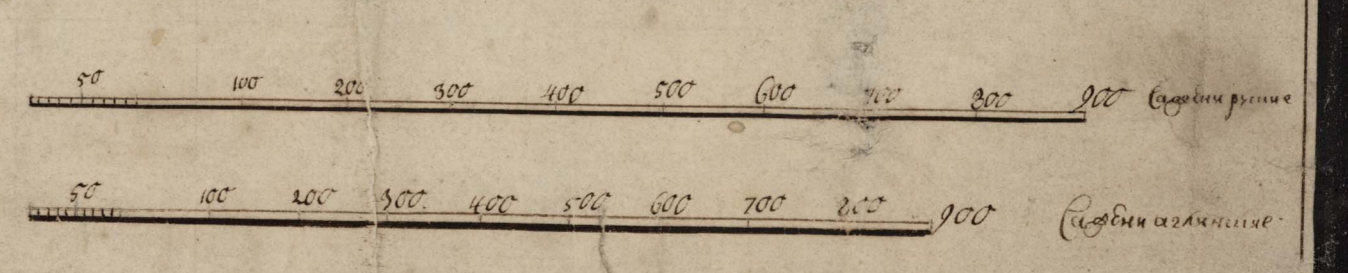 50 100 200 300 400 500 600 700 800 900 Сажени руские
50 100 200 300. 400 500 600 700 800 900 Сажени аглинские